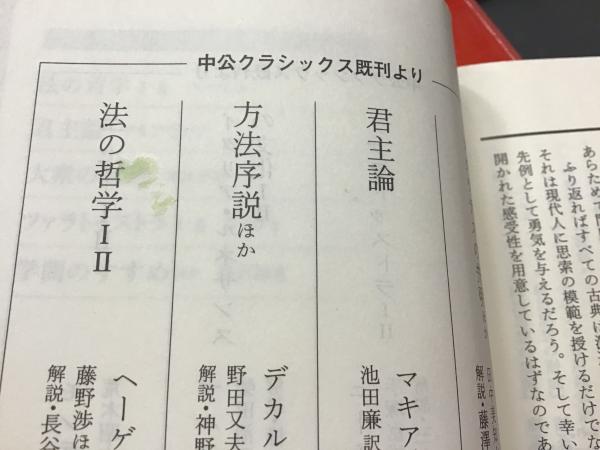 中公クラシックス既刊より
君主論
マキア
池田廉訳
方法序説ほか
デカル
野田又夫
解説・神野
法の哲学ⅠⅡ
ヘーゲ
藤野渉ほ
解説・長谷
解説・藤澤
ふり返ればすべての古典は
それは現代人に思索の模範を授けるだけでな
先例として勇気を与えるだろう。そして幸い
開かれた感受性を用意しているはずなのであ